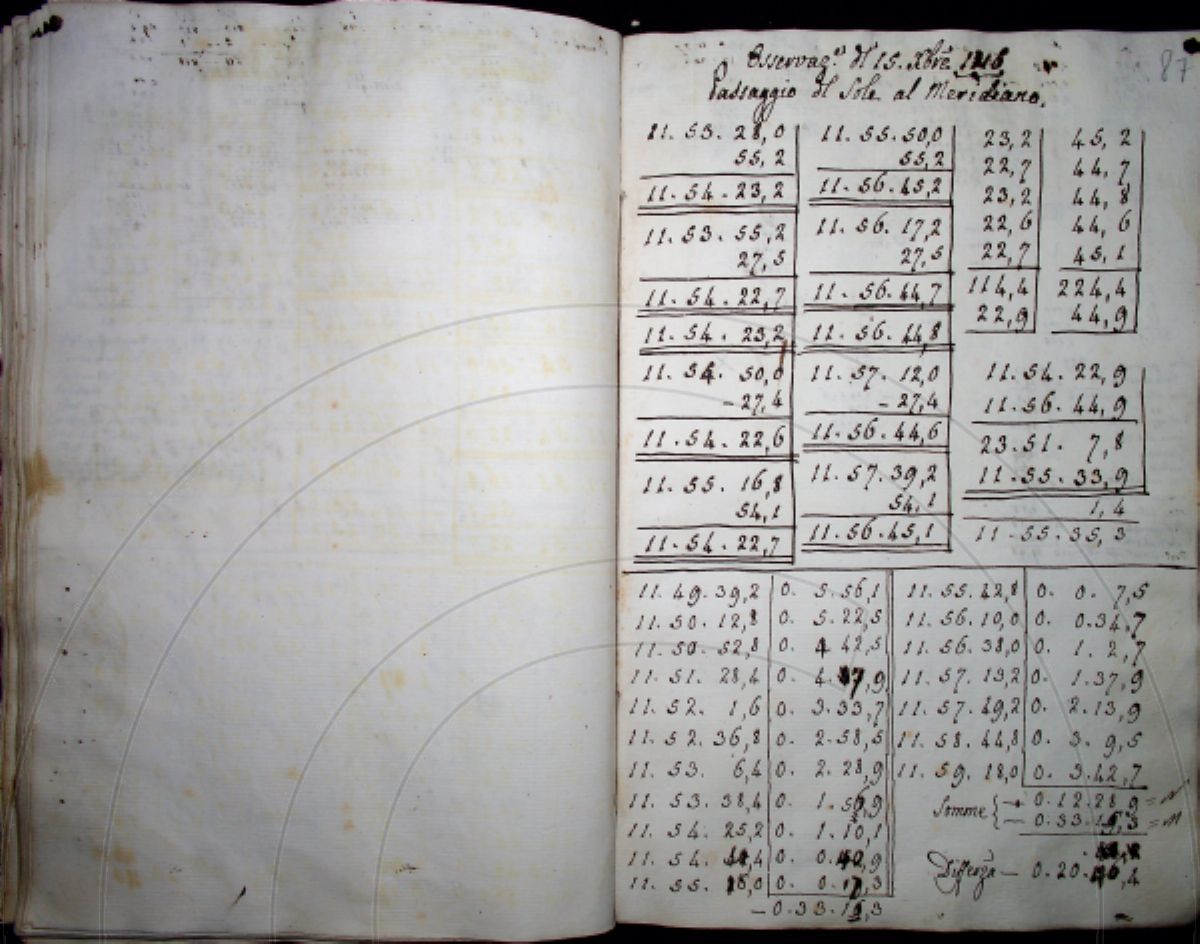 87
Osservaz.ni dl 15. Xbre 1816
Passaggio dl Sole al Meridiano.
11. 53. 28,0
55,2
11. 54. 23,2
11. 53. 55,2
27,5
11. 54. 22,7
11. 54. 23,2
11. 54. 50,0
- 27,4
11. 54. 22,6
11. 55. 16,8
54,1
11. 54. 22,7
11. 55. 50,0
55,2
11. 56. 45,2
11. 56. 17,2
27,5
11. 56. 44,7
11. 56. 44,8
11. 57. 12,0
- 27,4
11. 56. 44,6
11. 57. 39,2
54,1
11. 56. 45,1
23,2
22,7
23,2
22,6
22,7
114,4
22,9
45,2
44,7
44,8
44,6
45,1
224,4
44,9
11. 54. 22,9
11. 56. 44,9
23. 51. 7,8
11. 55. 33,9
1,4
11. 55. 35,3
11. 49. 39,2 0. 5. 56,1
11. 50. 12,8 0. 5. 22,5
11. 50. 52,8 0. 4 42,5
11. 51. 28,4 0. 4. 7,9
11. 52. 1,6 0. 3. 33,7
11. 52. 36,8 0. 2. 58,5
11. 53. 6,4 0. 2. 28,9
11. 53. 38,4 0. 1. 56,9
11. 54. 25,2 0. 1. 10,1
11. 54. 0. 0.
11. 55. 18,0 0. 0. 17,3
- 0. 33. 15,3
11. 55. 42,8 0. 0. 7,5
11. 56. 10,0 0. 0. 34,7
11. 56. 38,0 0. 1. 2,7
11. 57. 13,2 0. 1. 37,9
11. 57. 49,2 0. 2. 13,9
11. 58. 44,8 0. 3. 9,5
11. 59. 18,0 0. 3. 42,7
Somme { + 0. 12. 28 9
- 0. 33. 15,3
Differza - 0. 20.